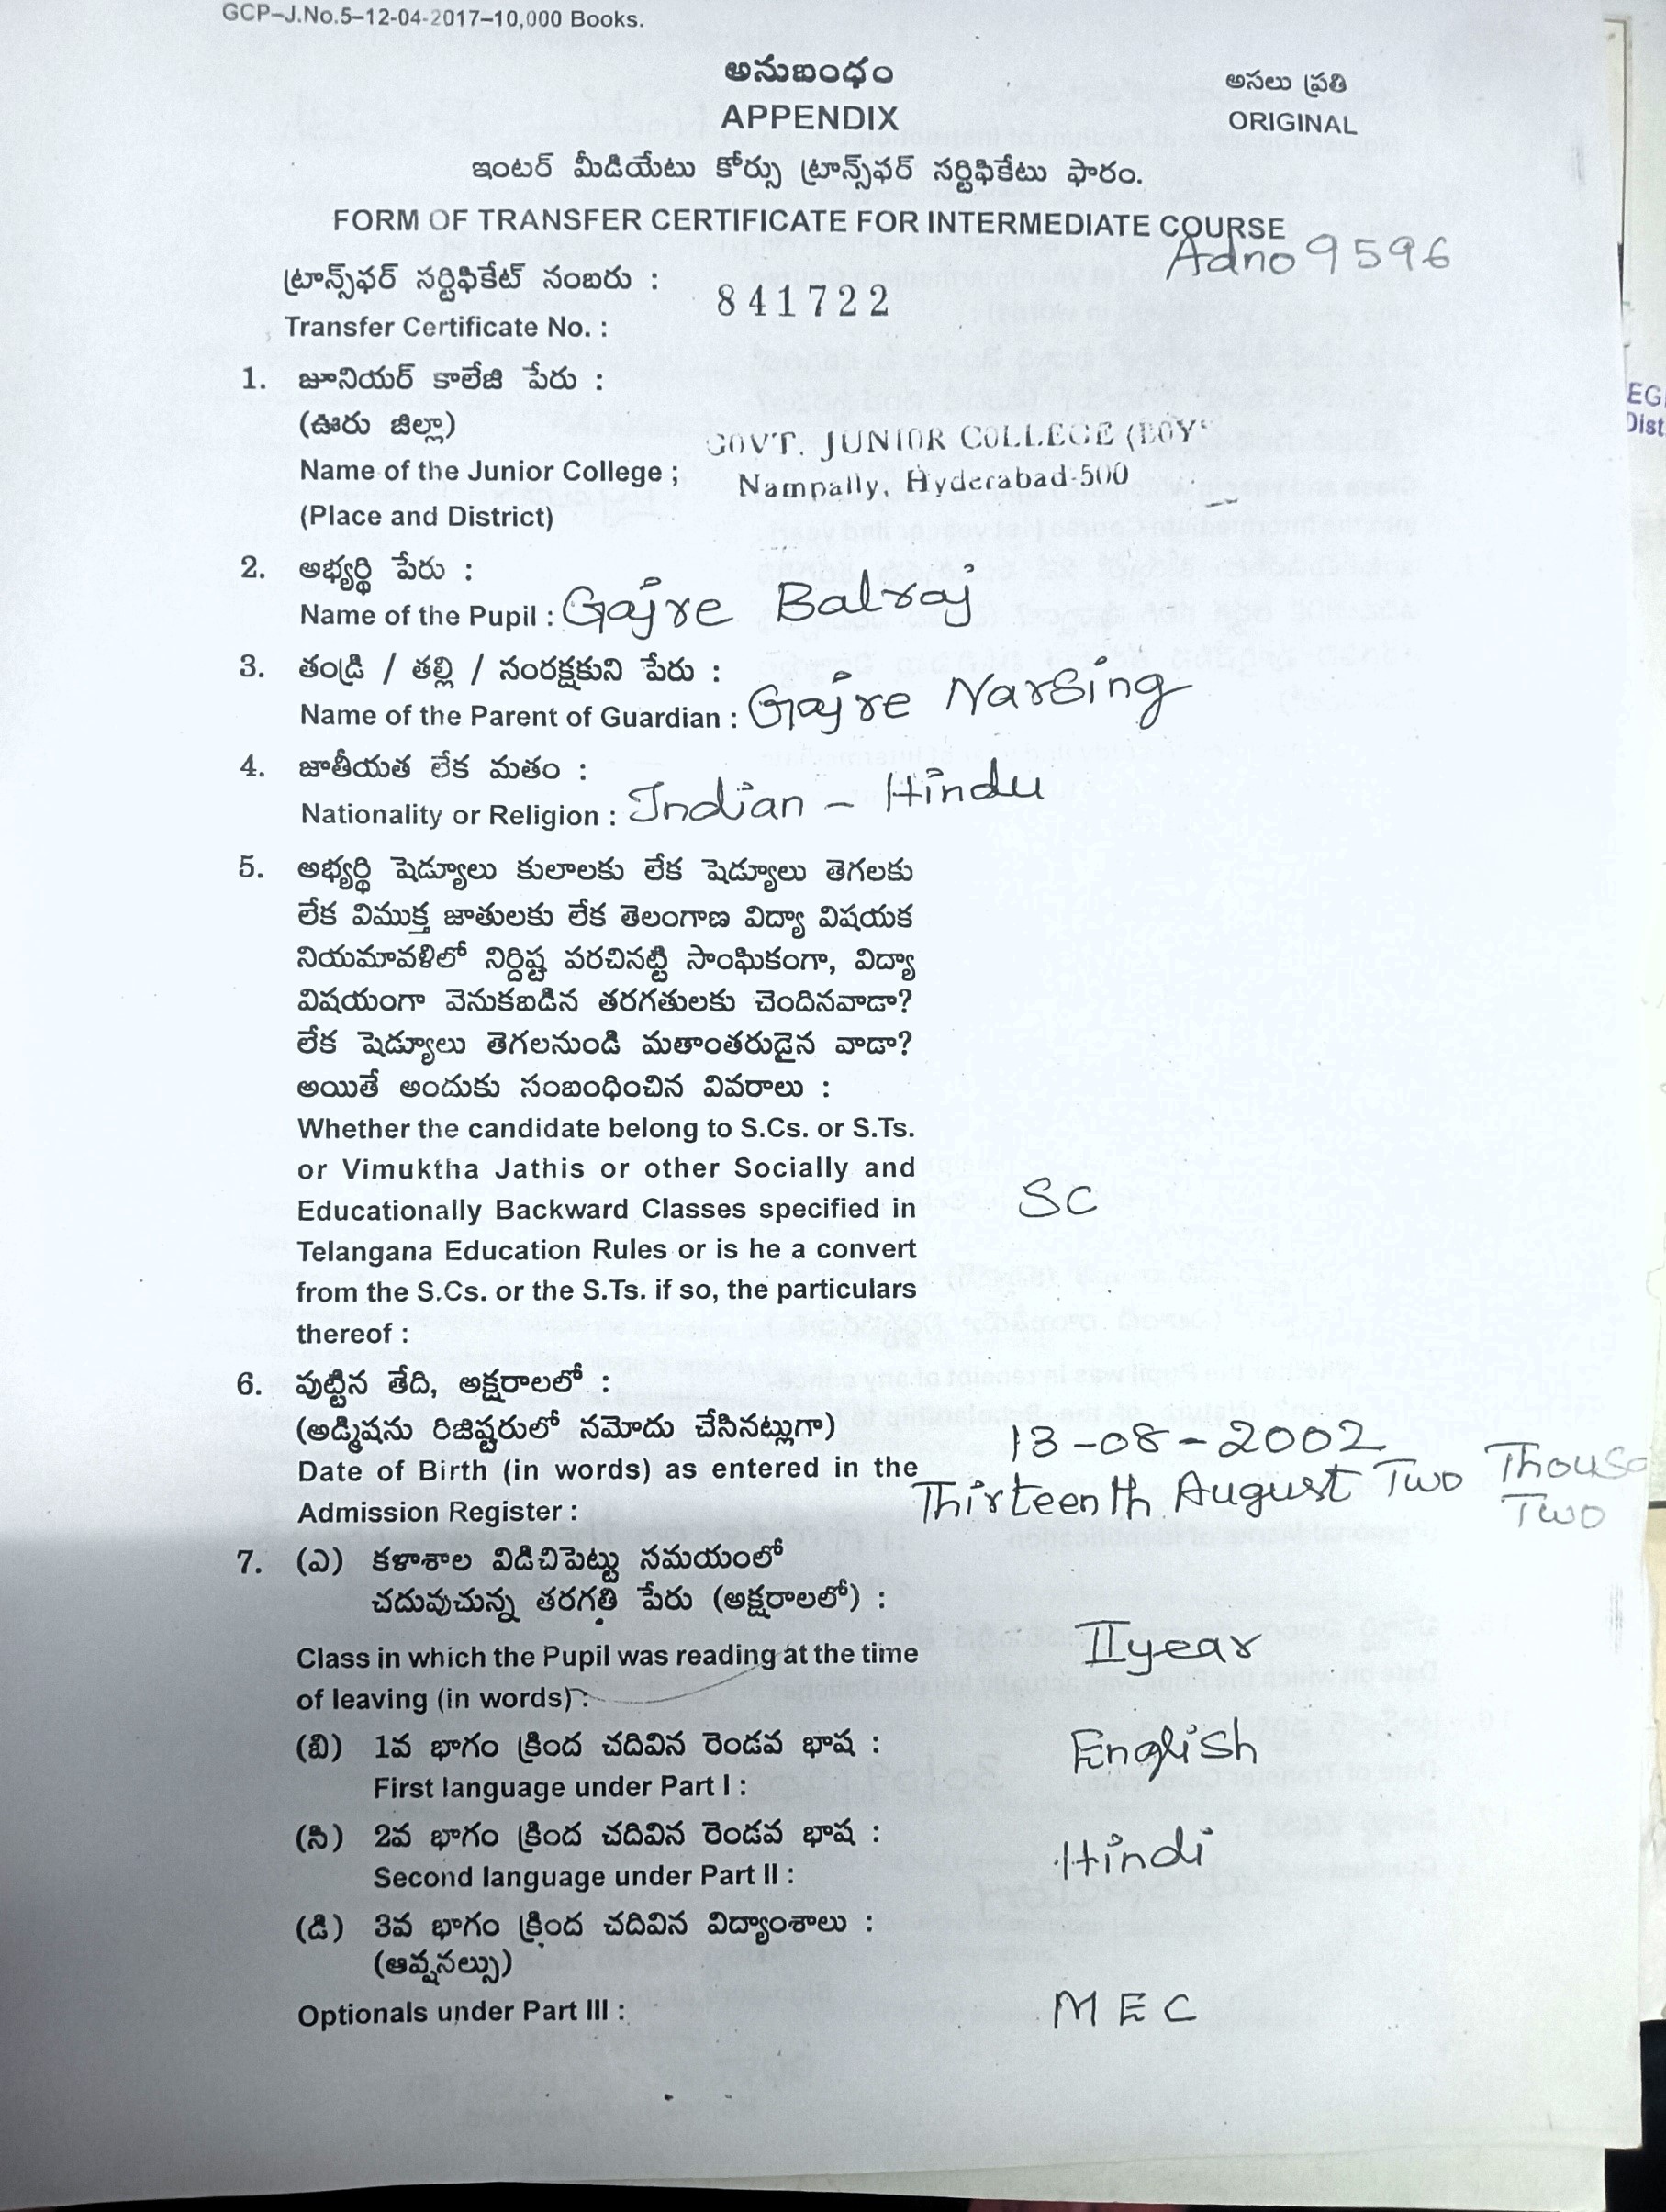 GCP–J.No.5–12-04-2017–10,000 Books.
అనుబంధం
అసలు ప్రతి
APPENDIX
ORIGINAL
ఇంటర్ మీడియేటు కోర్సు ట్రాన్స్‌ఫర్ సర్టిఫికేటు ఫారం.
FORM OF TRANSFER CERTIFICATE FOR INTERMEDIATE COURSE
Adno 9596
ట్రాన్స్‌ఫర్ సర్టిఫికేట్ నంబరు :
841722
Transfer Certificate No. :
1. జూనియర్ కాలేజి పేరు :
(ఊరు జిల్లా)
GOVT. JUNIOR COLLEGE (BOY
Name of the Junior College ;
Nampally, Hyderabad-500
(Place and District)
2. అభ్యర్థి పేరు :
Name of the Pupil : Gajre Balraj
3. తండ్రి / తల్లి / సంరక్షకుని పేరు :
Name of the Parent of Guardian : Gajre Narsing
4. జాతీయత లేక మతం :
Nationality or Religion : Indian – Hindu
5. అభ్యర్థి షెడ్యూలు కులాలకు లేక షెడ్యూలు తెగలకు
లేక విముక్త జాతులకు లేక తెలంగాణ విద్యా విషయక
నియమావళిలో నిర్దిష్ట పరచినట్టి సాంఘికంగా, విద్యా
విషయంగా వెనుకబడిన తరగతులకు చెందినవాడా?
లేక షెడ్యూలు తెగలనుండి మతాంతరుడైన వాడా?
అయితే అందుకు సంబంధించిన వివరాలు :
Whether the candidate belong to S.Cs. or S.Ts.
or Vimuktha Jathis or other Socially and
Educationally Backward Classes specified in
SC
Telangana Education Rules or is he a convert
from the S.Cs. or the S.Ts. if so, the particulars
thereof :
6. పుట్టిన తేది, అక్షరాలలో :
(అడ్మిషను రిజిష్టరులో నమోదు చేసినట్లుగా)
13-08-2002
Date of Birth (in words) as entered in the
Thirteenth August Two Thousa
Admission Register :
Two
7. (ఎ) కళాశాల విడిచిపెట్టు సమయంలో
చదువుచున్న తరగతి పేరు (అక్షరాలలో) :
Class in which the Pupil was reading at the time
II year
of leaving (in words) :
(బి) 1వ భాగం క్రింద చదివిన రెండవ భాష :
English
First language under Part I :
(సి) 2వ భాగం క్రింద చదివిన రెండవ భాష :
Hindi
Second language under Part II :
(డి) 3వ భాగం క్రింద చదివిన విద్యాంశాలు :
(ఆప్షనల్సు)
Optionals under Part III :
MEC
EG
Dist